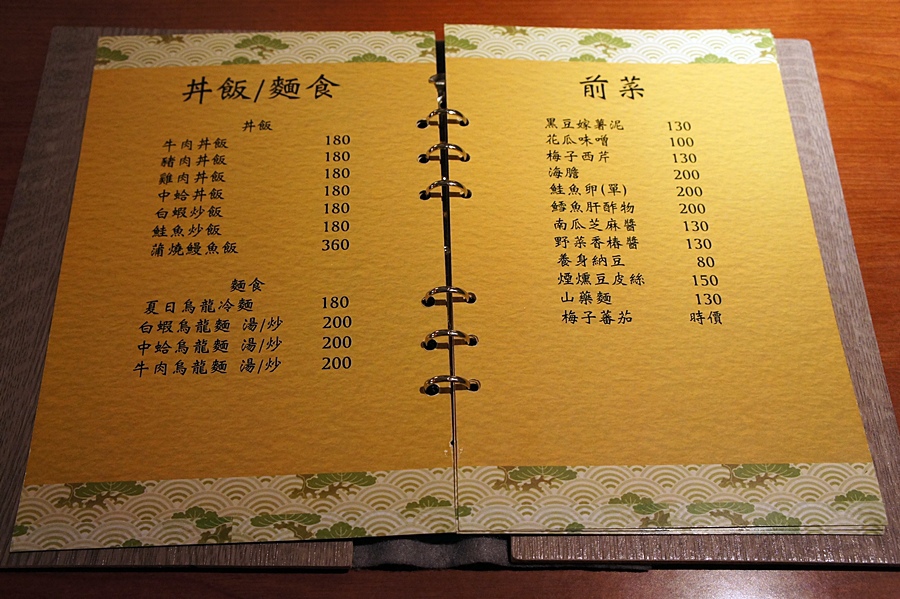 丼飯/麵食
丼飯
牛肉丼飯 180
豬肉丼飯 180
雞肉丼飯 180
中蛤丼飯 180
白蝦炒飯 180
鮭魚炒飯 180
蒲燒鰻魚飯 360
麵食
夏日烏龍冷麵 180
白蝦烏龍麵 湯/炒 200
中蛤烏龍麵 湯/炒 200
牛肉烏龍麵 湯/炒 200
前菜
黑豆嫁薯泥 130
花瓜味噌 100
梅子西芹 130
海膽 200
鮭魚卵(單) 200
鱈魚肝酢物 200
南瓜芝麻醬 130
野菜香椿醬 130
養身納豆 80
煙燻豆皮絲 150
山藥麵 130
梅子蕃茄 時價